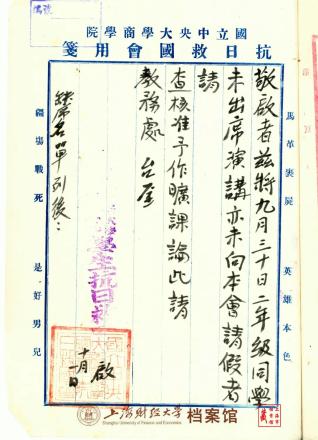 號編
院學商學大央中立國
箋用會國救日抗
馬革裹屍 英雄本色
敬啟者茲將九月三十日二年級同學
未出席演講亦未向本會請假者
請
查核准予作曠課論此請
教務處 台鉴
缺席名單列後：
學生抗日救
啟
十月一日
疆場戰死 是好男兒
上海财经大学 档案馆
Shanghai University of Finance and Economics